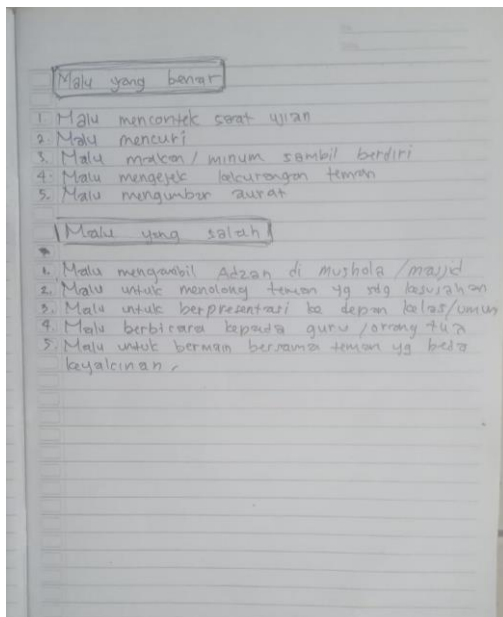 Malu yang benar
1. Malu mencontek saat ujian
2. Malu mencuri
3. Malu makan / minum sambil berdiri
4. Malu mengejek kekurangan teman
5. Malu mengumbar aurat
Malu yang salah
1. Malu mengambil Adzan di mushola / masjid
2. Malu untuk menolong teman yg sdg kesusahan
3. Malu untuk berpresentasi ke depan kelas/umum
4. Malu berbicara kepada guru / orrang tua
5. Malu untuk bermain bersama teman yg beda
keyakinan.